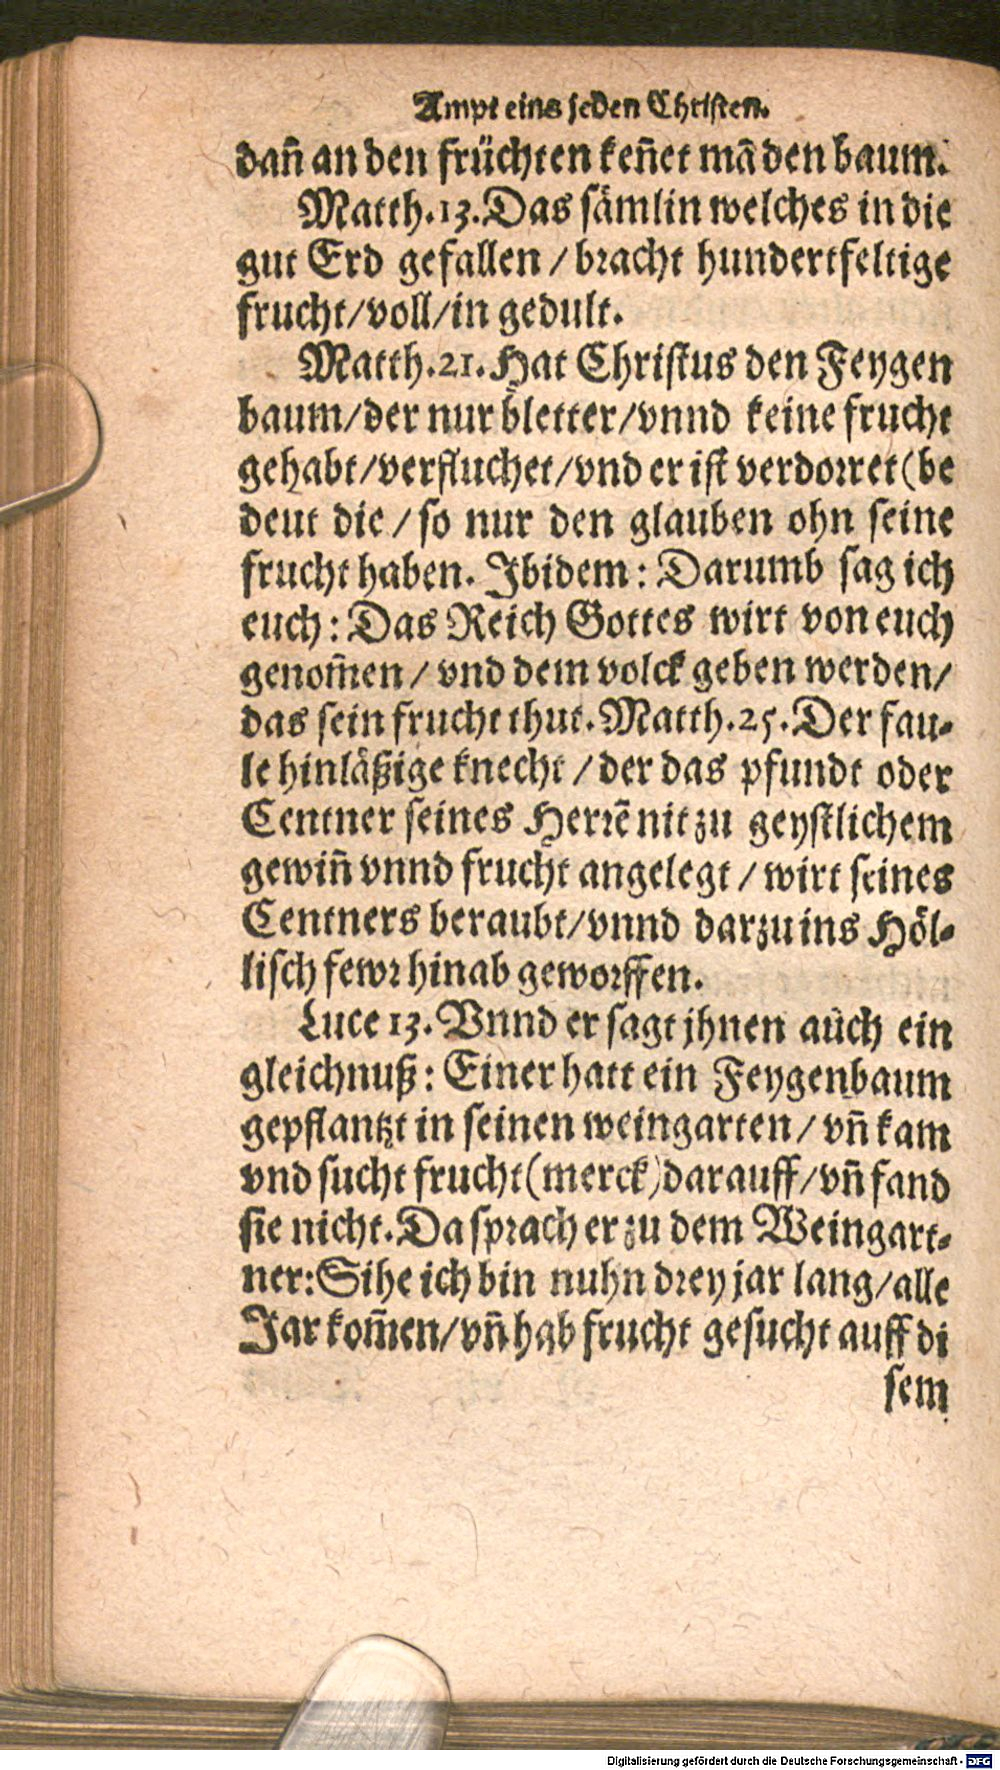 Ampt eins jeden Christen.
dañ an den früchten keñet mã den baum.
Matth. 13. Das sämlin welches in die
gut Erd gefallen / bracht hundertfeltige
frucht/voll/in gedult.
Matth. 21. Hat Christus den Feygen
baum/der nur bletter/vnnd keine frucht
gehabt/verfluchet/vnd er ist verdorret(be
deut die / so nur den glauben ohn seine
frucht haben. Ibidem : Darumb sag ich
euch : Das Reich Gottes wirt von euch
genom̃en / vnd dem volck geben werden/
das sein frucht thut. Matth. 25. Der fau-
le hinläßige knecht / der das pfundt oder
Centner seines Herrẽ nit zu geystlichem
gewiñ vnnd frucht angelegt / wirt seines
Centners beraubt/vnnd darzu ins Höl-
lisch fewr hinab geworffen.
Luce 13. Vnnd er sagt jhnen auch ein
gleichnuß : Einer hatt ein Feygenbaum
gepflantzt in seinen weingarten / vñ kam
vnd sucht frucht(merck)darauff/vñ fand
sie nicht. Da sprach er zu dem Weingart-
ner: Sihe ich bin nuhn drey jar lang/alle
Jar kom̃en/vñ hab frucht gesucht auff di
sem
Digitalisierung gefördert durch die Deutsche Forschungsgemeinschaft - DFG